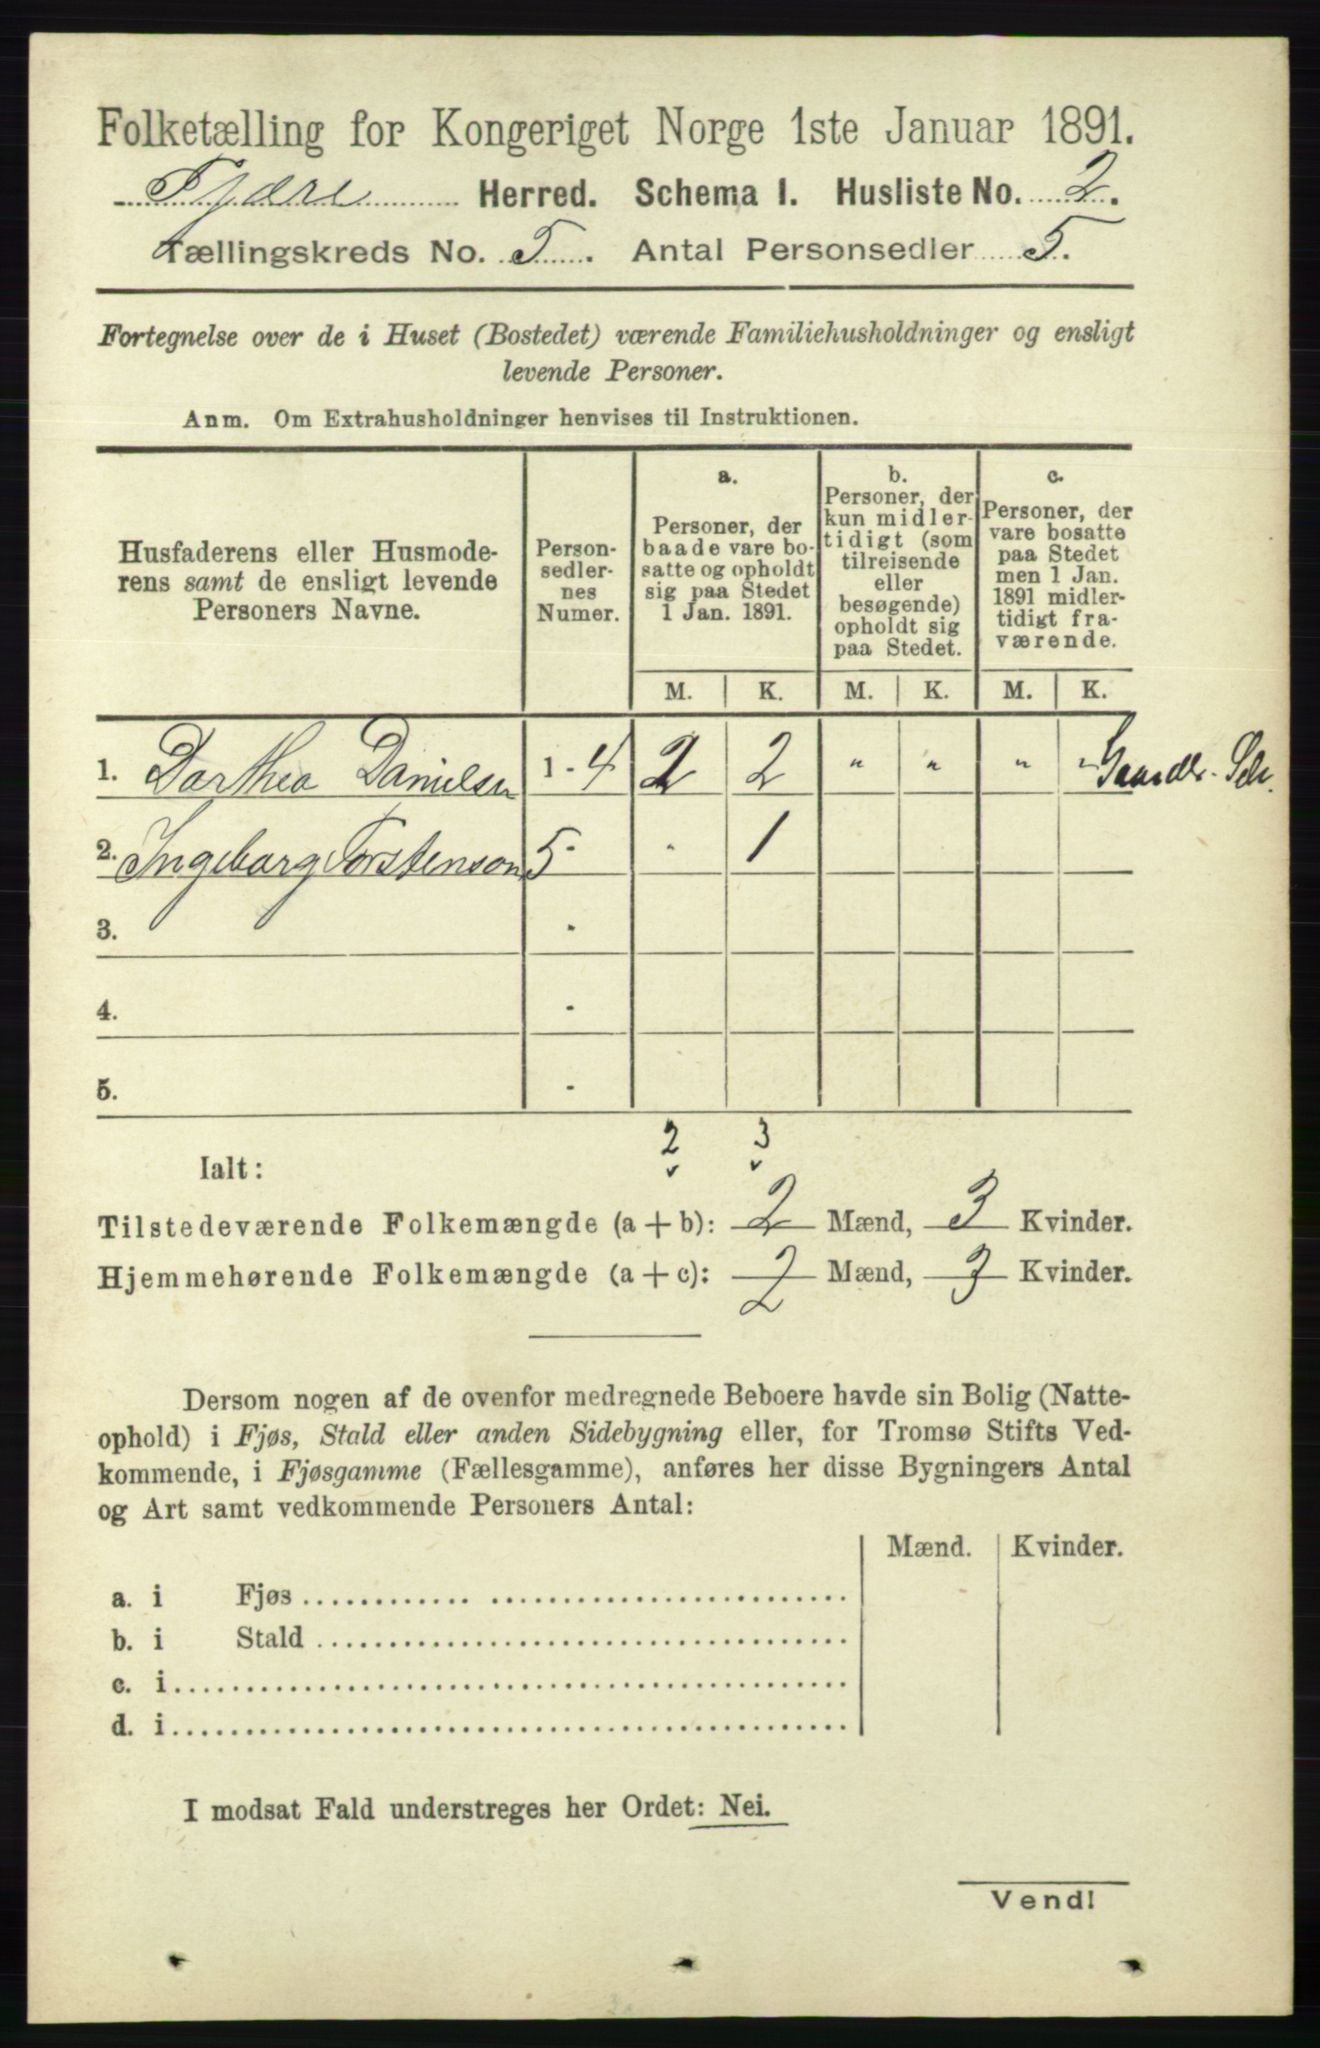 Folketælling for Kongeriget Norge 1ste Januar 1891.
Fjære Herred. Schema I. Husliste No. 2.
Tællingskreds No. 5. Antal Personsedler 5.
Fortegnelse over de i Huset (Bostedet) værende Familiehusholdninger og ensligt
levende Personer.
Anm. Om Extrahusholdninger henvises til Instruktionen.
Husfaderens eller Husmode-
rens samt de ensligt levende
Personers Navne.
Person-
sedler-
nes
Numer.
a.
Personer, der
baade vare bo-
satte og opholdt
sig paa Stedet
1 Jan. 1891.
b.
Personer, der
kun midler-
tidigt (som
tilreisende
eller
besøgende)
opholdt sig
paa Stedet.
c.
Personer, der
vare bosatte
paa Stedet
men 1 Jan.
1891 midler-
tidigt fra-
værende.
M. K. M. K. M. K.
1. Darthea Danielsen 1 - 4 2 2 " " " " Gaardbr. Selv.
2. Ingeborg Torstenson 5 - - 1
3. -
4. -
5. -
2 3
Ialt:
Tilstedeværende Folkemængde (a + b): 2 Mænd, 3 Kvinder.
Hjemmehørende Folkemængde (a + c): 2 Mænd, 3 Kvinder.
Dersom nogen af de ovenfor medregnede Beboere havde sin Bolig (Natte-
ophold) i Fjøs, Stald eller anden Sidebygning eller, for Tromsø Stifts Ved-
kommende, i Fjøsgamme (Fællesgamme), anføres her disse Bygningers Antal
og Art samt vedkommende Personers Antal:
Mænd. Kvinder.
a. i Fjøs
b. i Stald
c. i
d. i
I modsat Fald understreges her Ordet: Nei.
Vend!